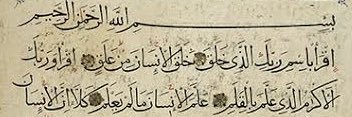 بسم الله الرحمن الرحيم
اقرأ باسم ربك الذي خلق خلق الإنسان من علق اقرأ وربك
الأكرم الذي علم بالقلم علم الإنسان ما لم يعلم كلا إن الإنسان